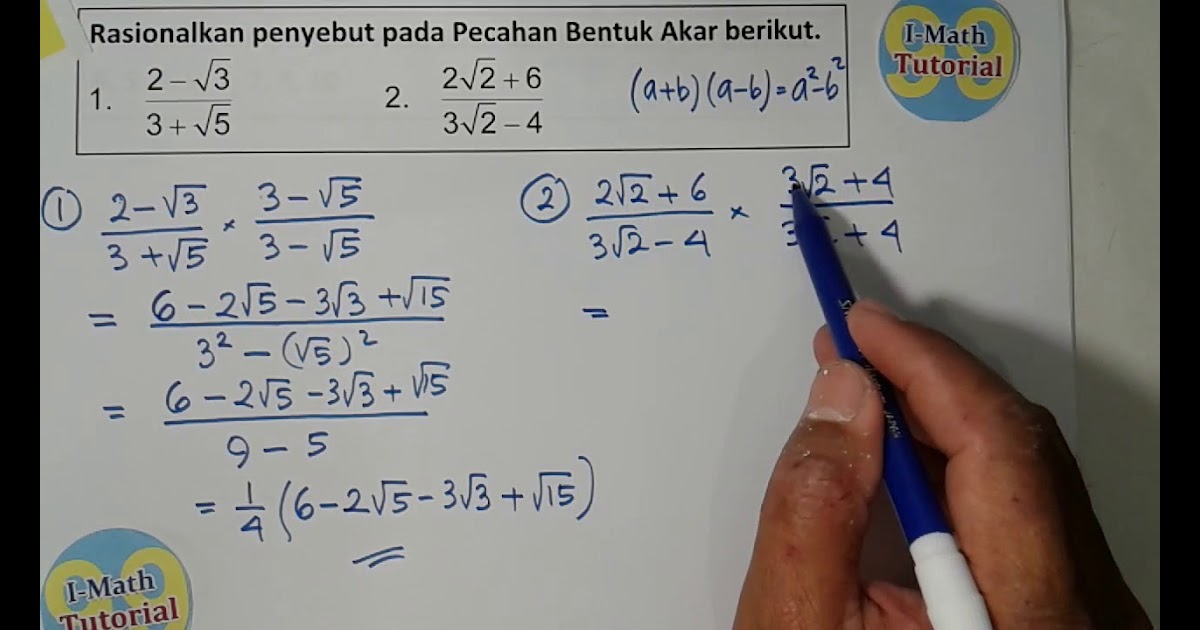 Rasionalkan penyebut pada Pecahan Bentuk Akar berikut.
1. (2 − √3)/(3 + √5)
2. (2√2 + 6)/(3√2 − 4)
(a+b)(a−b) = a² − b²
I-Math
Tutorial
① (2 − √3)/(3 + √5) × (3 − √5)/(3 − √5)
= (6 − 2√5 − 3√3 + √15)/(3² − (√5)²)
= (6 − 2√5 − 3√3 + √15)/(9 − 5)
= 1/4 (6 − 2√5 − 3√3 + √15)
② (2√2 + 6)/(3√2 − 4) × (3√2 + 4)/(3 + 4)
=
I-Math
Tutorial